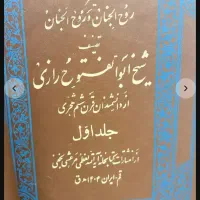 روح الجنان و روح الجنان
تصنیف
شیخ ابوالفتوح رازی
از دانشمندان قرن ششم هجری
جلد اول
از انتشارات کتابخانه آیة الله العظمی مرعشی نجفی
قم - ایران ۱۴۰۴ ه ق